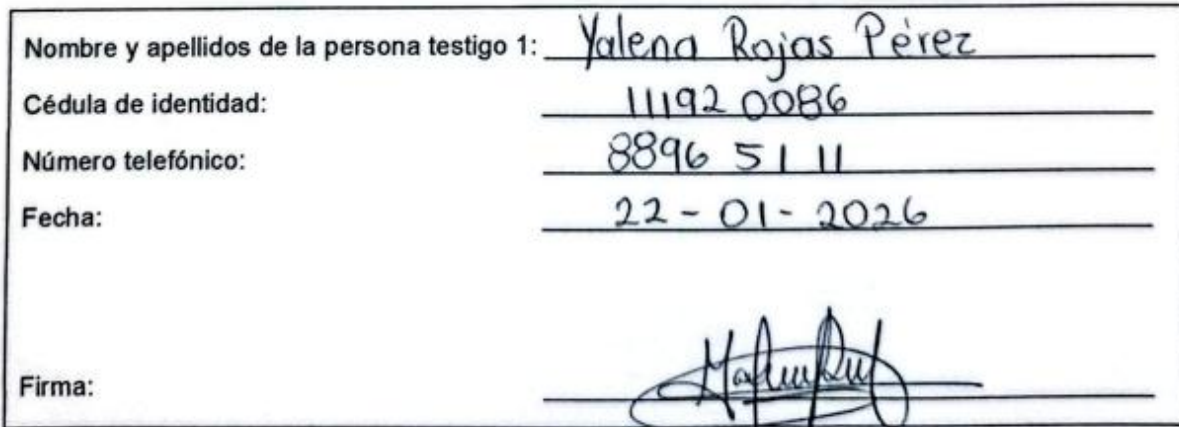 Nombre y apellidos de la persona testigo 1: Yalena Rojas Pérez
Cédula de identidad: 11192 0086
Número telefónico: 8896 51 11
Fecha: 22-01-2026
Firma: